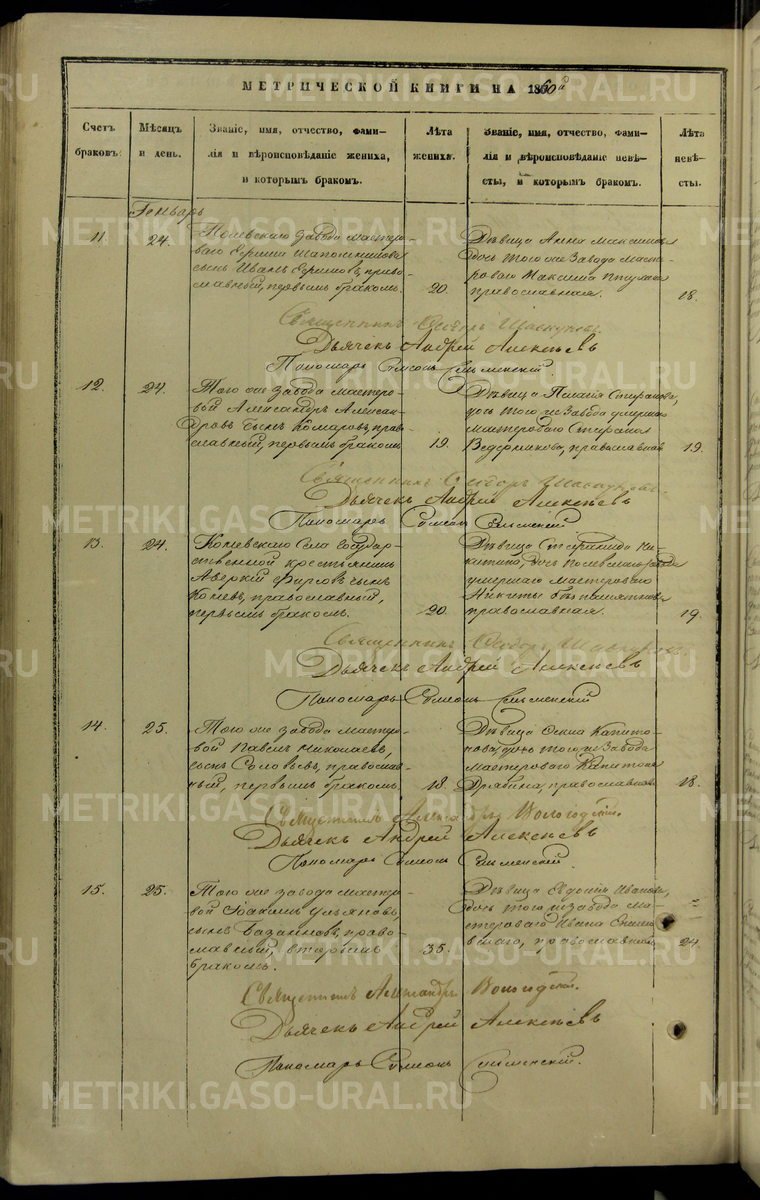 МЕТРИЧЕСКОЙ КНИГИ НА 1860й
Счетъ браковъ.
Мѣсяцъ и день.
Званіе, имя, отчество, фами-
лія и вѣроисповѣданіе жениха,
и которымъ бракомъ.
Лѣта жениха.
Званіе, имя, отчество, фами-
лія и вѣроисповѣданіе невѣ-
сты, и которымъ бракомъ.
Лѣта невѣ-
сты.
Генварь
11. 24.
Полевскаго завода мастеро-
ваго Ефима
сынъ Иванъ Ефимовъ, право-
славный, первымъ бракомъ. 20.
Дѣвица Анна Максимова
дочь того же Завода масте-
роваго Максима
православная. 18.
Священникъ Ѳеодоръ
Дьячекъ Андрей Алексѣевъ
Пономарь Симеонъ
12. 24.
Того же завода мастеро-
вой Александръ Алексан-
дровъ сынъ Комаровъ, прав-
славный, первымъ бракомъ 19.
Дѣвица
дочь того же Завода умершаго
мастероваго
Ведерникова, православная 19.
Священникъ Ѳеодоръ
Дьячекъ Андрей Алексѣевъ
Пономарь Симеонъ
13. 24.
села Государ-
ственной крестьянинъ
Аверкій Фирсовъ сынъ
православный,
первымъ бракомъ. 20
Дѣвица Стефанида Ни-
китина, дочь Полевскаго завода
умершаго мастероваго
Никиты Безпамятнова
православная. 19.
Священникъ Ѳеодоръ
Дьячекъ Андрей Алексѣевъ
Пономарь Симеонъ
14. 25.
Того же завода мастеро-
вой Павелъ Николаевъ,
сынъ Соловьевъ, православ-
ный, первымъ бракомъ 18.
Дѣвица Капито-
нова, дочь того же Завода
мастероваго Капитона
православная 18.
Священникъ Александръ Вологодскій.
Дьячекъ Андрей Алексѣевъ
Пономарь Симеонъ
15. 25.
Того же завода мастеро-
вой Іоакимъ Ульяновъ,
сынъ право-
славный, вторымъ
бракомъ. 35.
Дѣвица Евдокія Иванова,
дочь того же завода ма-
стероваго Ивана
православная 24.
Священникъ Александръ Вологодскій.
Дьячекъ Андрей Алексѣевъ
Пономарь Симеонъ
METRIKI.GASO-URAL.RU